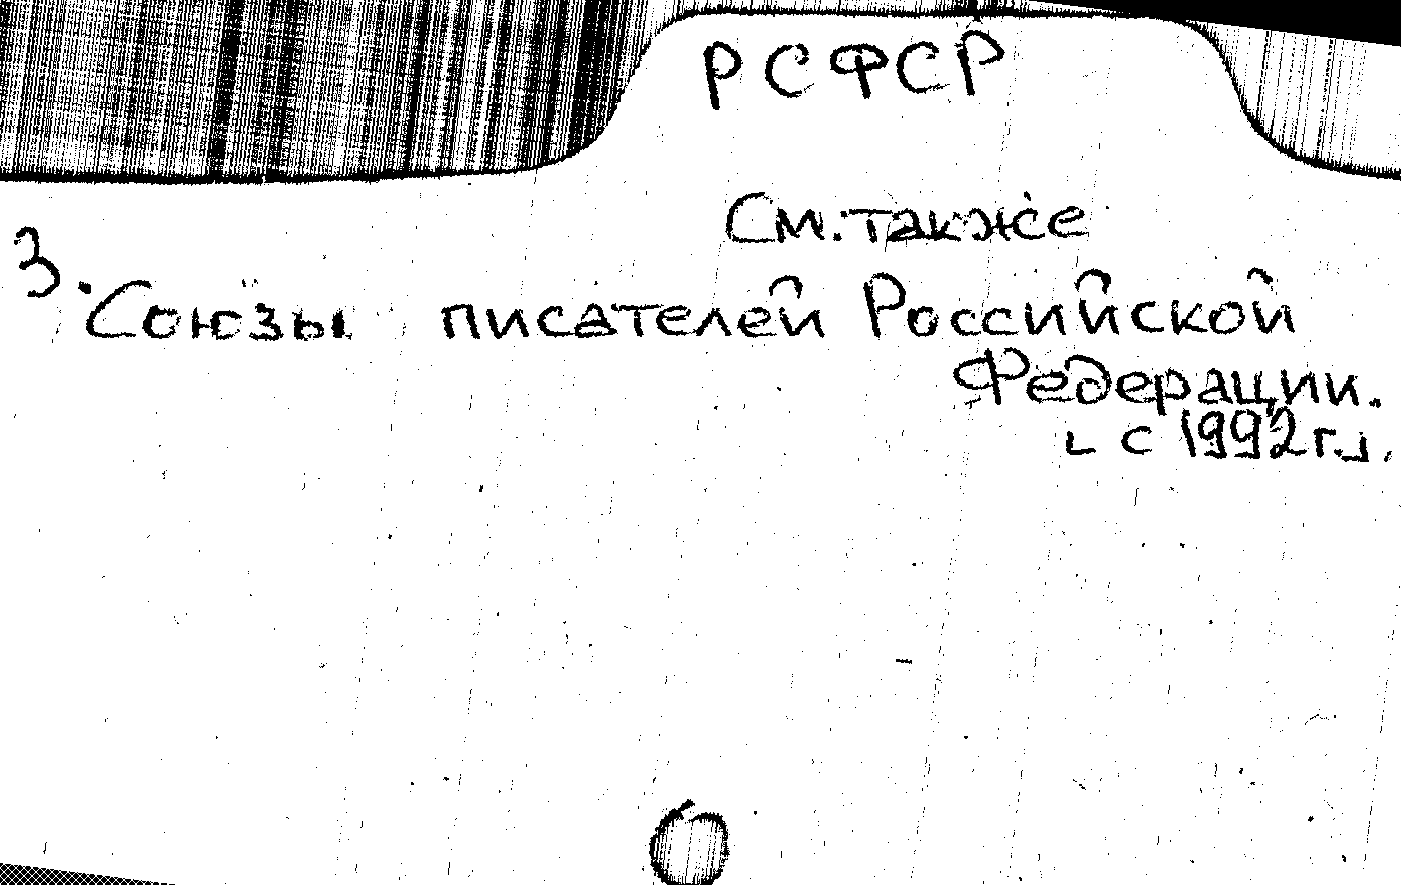 РСФСР
См. также
3. Союзы писателей Российской
Федерации.
[с 1992 г.].